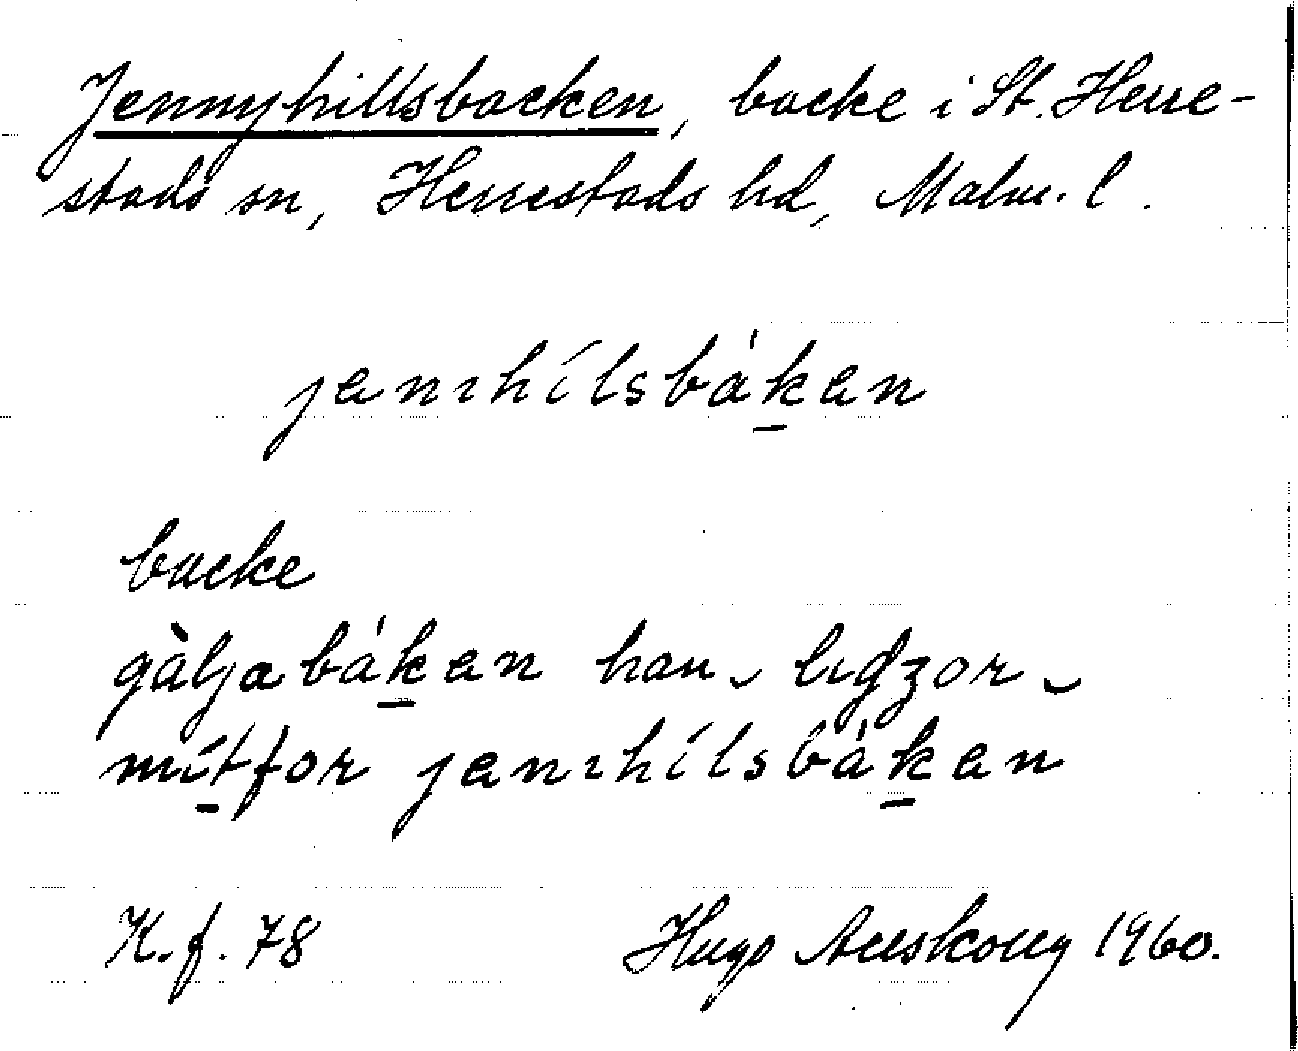 Jennyhillsbacken, backe i St. Herre-
stads sn, Herrestads hd, Malm. l.
jenıhílsbákan
backe
gàljabákan han ligzor
mítfor jenıhílsbákan
K. f. 78 Hugo Areskoug 1960.